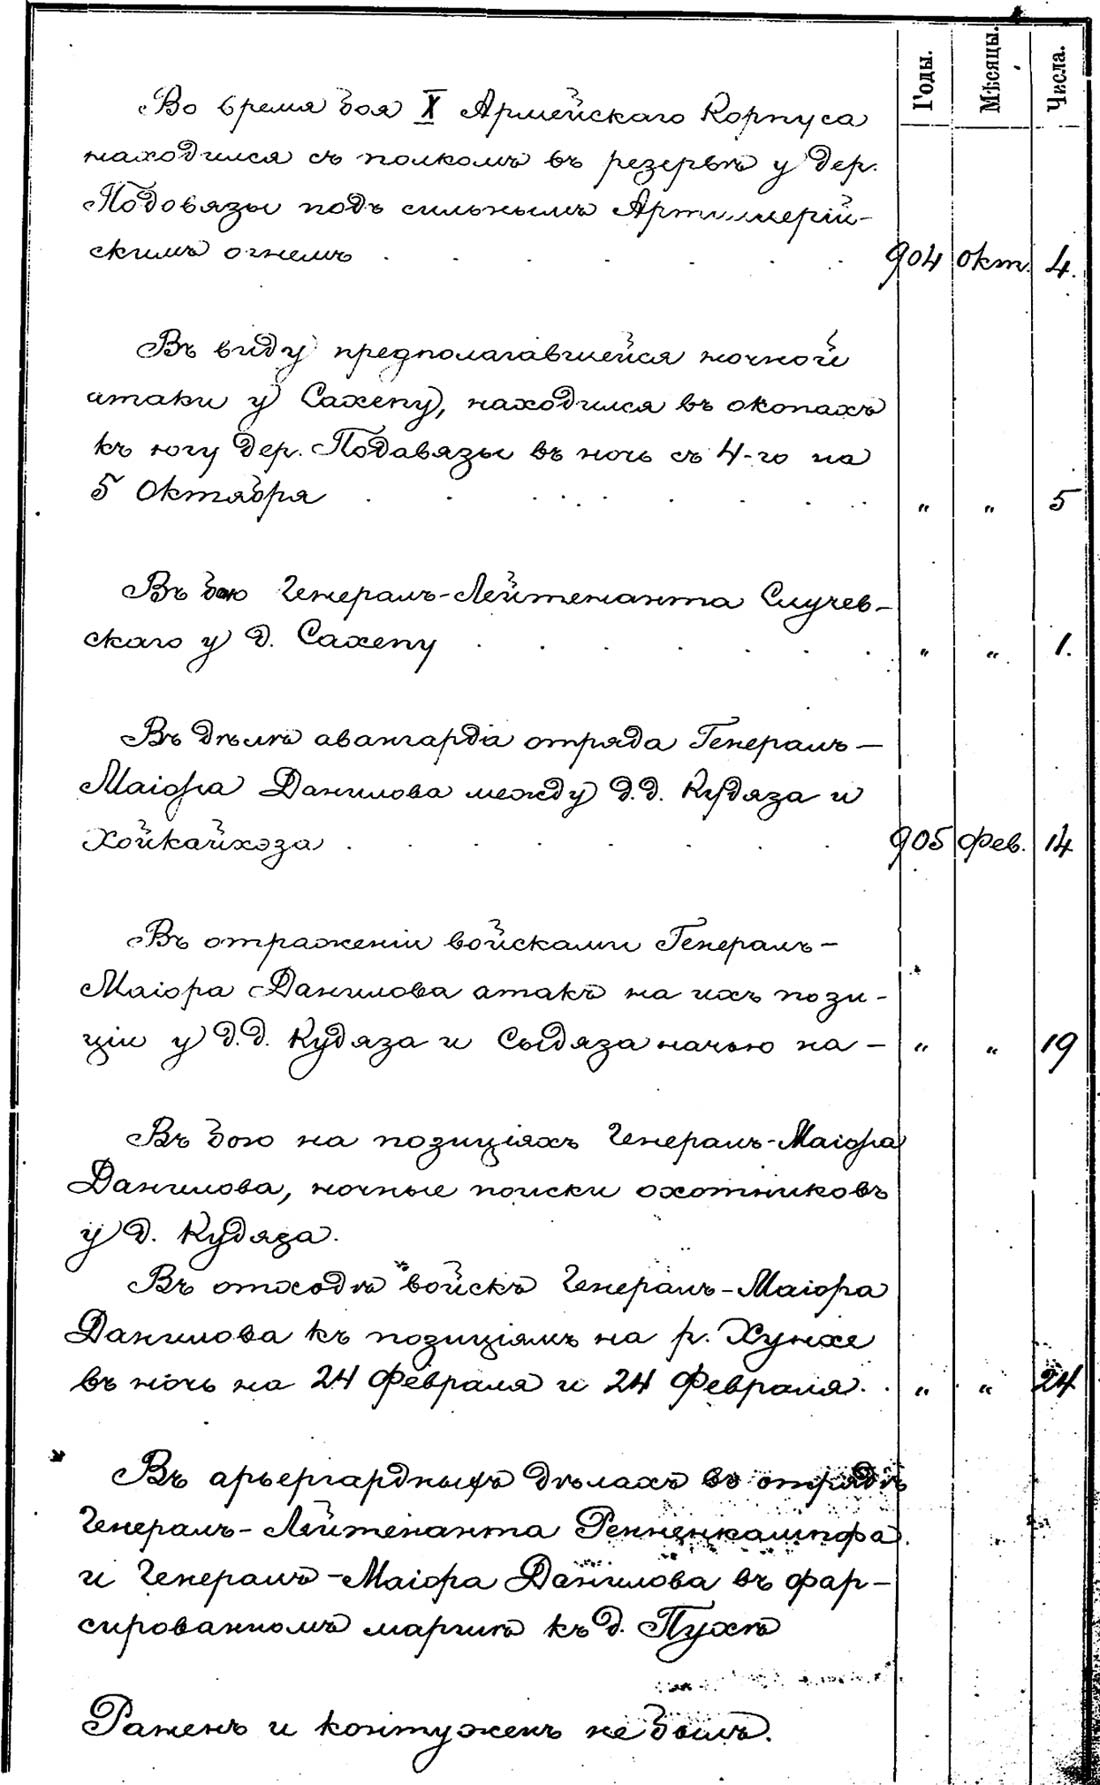 Годы. Мѣсяцы. Числа.
Во время боя X Армейскаго Корпуса
находился съ полкомъ въ резервѣ у дер.
Подовязы подъ сильнымъ Артиллерій-
скимъ огнемъ . . . . . . . 904 Окт. 4.
Въ виду предполагавшейся ночной
атаки у Сахепу, находился въ окопахъ
къ югу дер. Подавязы въ ночь съ 4-го на
5 Октября . . . . . . . . „ „ 5
Въ бою Генералъ-Лейтенанта Случев-
скаго у д. Сахепу . . . . . . „ „ 1.
Въ дѣлѣ авангарда отряда Генералъ-
Маіора Данилова между д.д. Кудяза и
Хойкайхэза . . . . . . . 905 Фев. 14
Въ отраженіи войсками Генералъ-
Маіора Данилова атакъ на ихъ пози-
ціи у д.д. Кудяза и Сыдяза ночью на - „ „ 19
Въ бою на позиціяхъ Генералъ-Маіора
Данилова, ночные поиски охотниковъ
у д. Кудяза.
Въ отходѣ войскъ Генералъ-Маіора
Данилова къ позиціямъ на р. Хунхе
въ ночь на 24 Февраля и 24 Февраля. . „ „ 24
Въ арьергардныхъ дѣлахъ въ отрядѣ
Генералъ-Лейтенанта Ренненкампфа
и Генералъ-Маіора Данилова въ фар-
сированномъ маршѣ къ д. Пухэ
Раненъ и контуженъ не былъ.